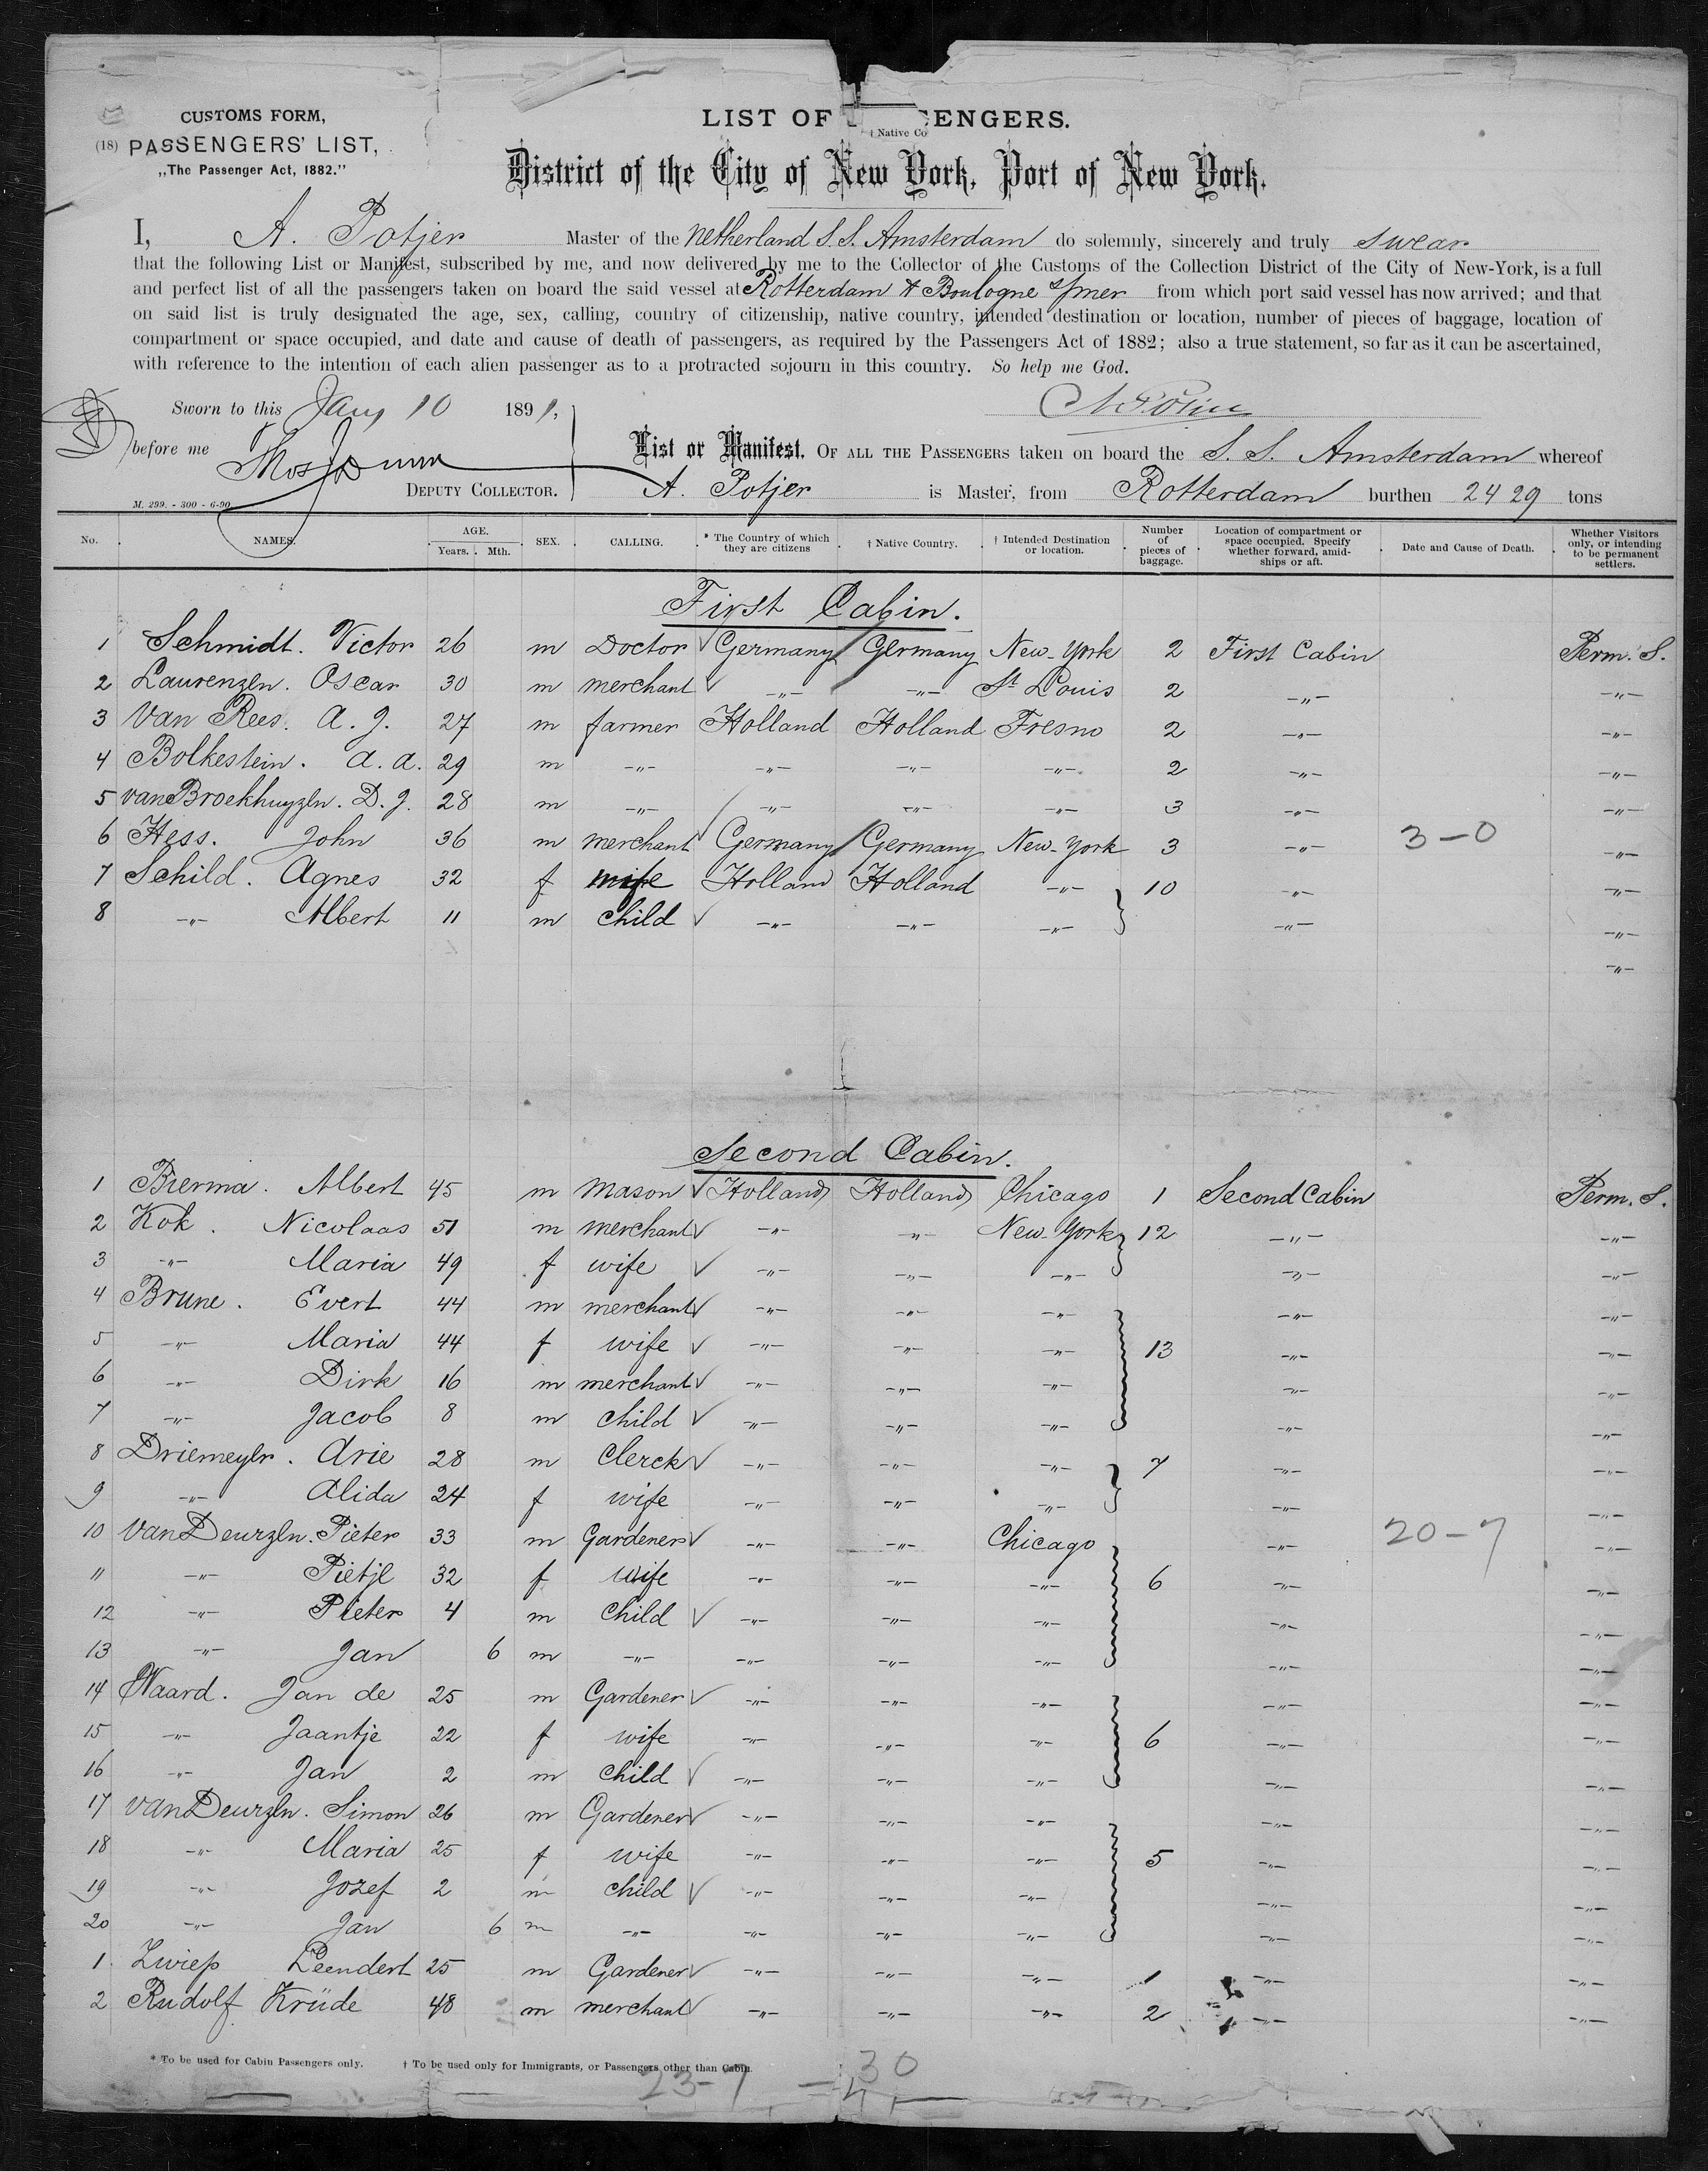 CUSTOMS FORM,
(18) PASSENGERS' LIST,
„The Passenger Act, 1882."
LIST OF ENGERS.
† Native Co
District of the City of New York, Port of New York.
I, A. Potjer Master of the Netherland S.S. Amsterdam do solemnly, sincerely and truly swear
that the following List or Manifest, subscribed by me, and now delivered by me to the Collector of the Customs of the Collection District of the City of New-York, is a full
and perfect list of all the passengers taken on board the said vessel at Rotterdam & Boulogne s/mer from which port said vessel has now arrived; and that
on said list is truly designated the age, sex, calling, country of citizenship, native country, intended destination or location, number of pieces of baggage, location of
compartment or space occupied, and date and cause of death of passengers, as required by the Passengers Act of 1882; also a true statement, so far as it can be ascertained,
with reference to the intention of each alien passenger as to a protracted sojourn in this country. So help me God.
Sworn to this Jany 10 1891,
before me Thos J Dunn
DEPUTY COLLECTOR.
M. 299. - 300 - 6-90
List or Manifest. OF ALL THE PASSENGERS taken on board the S. S. Amsterdam whereof
A. Potjer is Master, from Rotterdam burthen 2429 tons
No. NAMES. AGE. Years. Mth. SEX. CALLING. * The Country of which they are citizens † Native Country. † Intended Destination or location. Number of pieces of baggage. Location of compartment or space occupied. Specify whether forward, amid-ships or aft. Date and Cause of Death. Whether Visitors only, or intending to be permanent settlers.
First Cabin.
1 Schmidt. Victor 26 m Doctor Germany Germany New-York 2 First Cabin Perm. S.
2 Laurenzen. Oscar 30 m merchant -"- -"- St Louis 2 -"- -"-
3 Van Rees. A. J. 27 m farmer Holland Holland Fresno 2 -"- -"-
4 Bolkestein. A. A. 29 m -"- -"- -"- -"- 2 -"- -"-
5 van Broekhuyzen. D. J. 28 m -"- -"- -"- -"- 3 -"- -"-
6 Hess. John 36 m merchant Germany Germany New-York 3 -"- 3-0 -"-
7 Schild. Agnes 32 f wife Holland Holland -"- 10 -"- -"-
8 -"- Albert 11 m child -"- -"- -"- -"- -"-
-"-
Second Cabin.
1 Bierma. Albert 45 m Mason Holland Holland Chicago 1 Second Cabin Perm. S.
2 Kok. Nicolaas 51 m merchant -"- -"- New-York 12 -"- -"-
3 -"- Maria 49 f wife -"- -"- -"- -"- -"-
4 Brune. Evert 44 m merchant -"- -"- -"- -"- -"-
5 -"- Maria 44 f wife -"- -"- -"- 13 -"- -"-
6 -"- Dirk 16 m merchant -"- -"- -"- -"- -"-
7 -"- Jacob 8 m child -"- -"- -"- -"- -"-
8 Driemeyer. Arie 28 m Clerck -"- -"- -"- 7 -"- -"-
9 -"- Alida 24 f wife -"- -"- -"- -"- -"-
10 van Deurzen. Pieter 33 m Gardener -"- -"- Chicago -"- 20-7 -"-
11 -"- Pietje 32 f wife -"- -"- -"- 6 -"- -"-
12 -"- Pieter 4 m child -"- -"- -"- -"- -"-
13 -"- Jan 6 m -"- -"- -"- -"- -"- -"-
14 Waard. Jan de 25 m Gardener -"- -"- -"- -"- -"-
15 -"- Jaantje 22 f wife -"- -"- -"- 6 -"- -"-
16 -"- Jan 2 m child -"- -"- -"- -"- -"-
17 van Deurzen. Simon 26 m Gardener -"- -"- -"- -"- -"-
18 -"- Maria 25 f wife -"- -"- -"- 5 -"- -"-
19 -"- Jozef 2 m child -"- -"- -"- -"- -"-
20 -"- Jan 6 m -"- -"- -"- -"- -"- -"-
1 Zwiep Leendert 25 m Gardener -"- -"- -"- 1 -"- -"-
2 Rudolf Krüde 48 m merchant -"- -"- -"- 2 -"- -"-
* To be used for Cabin Passengers only. † To be used only for Immigrants, or Passengers other than Cabin.
23-7 = 30